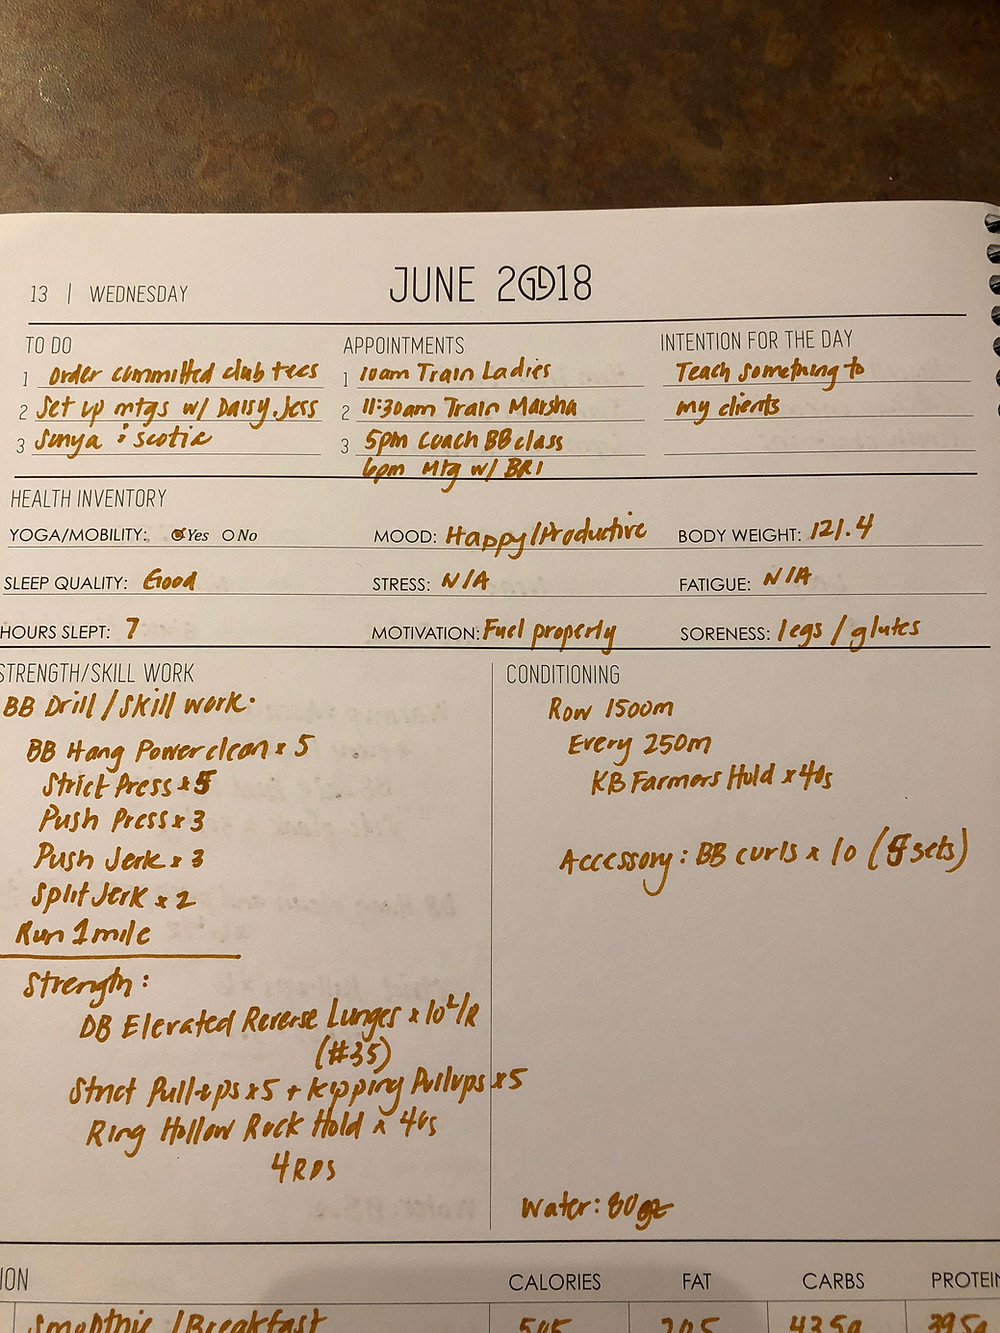 13 | WEDNESDAY
JUNE 2018
TO DO
1 Order committed club tees
2 Set up mtgs w/ Daisy, Jess
3 Sonya & Scotie
APPOINTMENTS
1 10am Train Ladies
2 11:30am Train Marsha
3 5pm Coach BB class
6pm Mtg w/ BRI
INTENTION FOR THE DAY
Teach something to
my clients
HEALTH INVENTORY
YOGA/MOBILITY: Yes No
MOOD: Happy/Productive
BODY WEIGHT: 121.4
SLEEP QUALITY: Good
STRESS: N/A
FATIGUE: N/A
HOURS SLEPT: 7
MOTIVATION: Fuel properly
SORENESS: legs / glutes
STRENGTH/SKILL WORK
BB Drill / Skill work:
BB Hang Power clean x 5
Strict Press x 5
Push Press x 3
Push Jerk x 3
Split Jerk x 2
Run 1 mile
Strength:
DB Elevated Reverse Lunges x 10 L/R
(#35)
Strict Pull-ups x 5 + Kipping Pullups x 5
Ring Hollow Rock Hold x 40s
4 RDS
CONDITIONING
Row 1500m
Every 250m
KB Farmers Hold x 40s
Accessory: BB curls x 10 (5 sets)
Water: 80oz
ION
CALORIES FAT CARBS PROTEIN
Smoothie / Breakfast